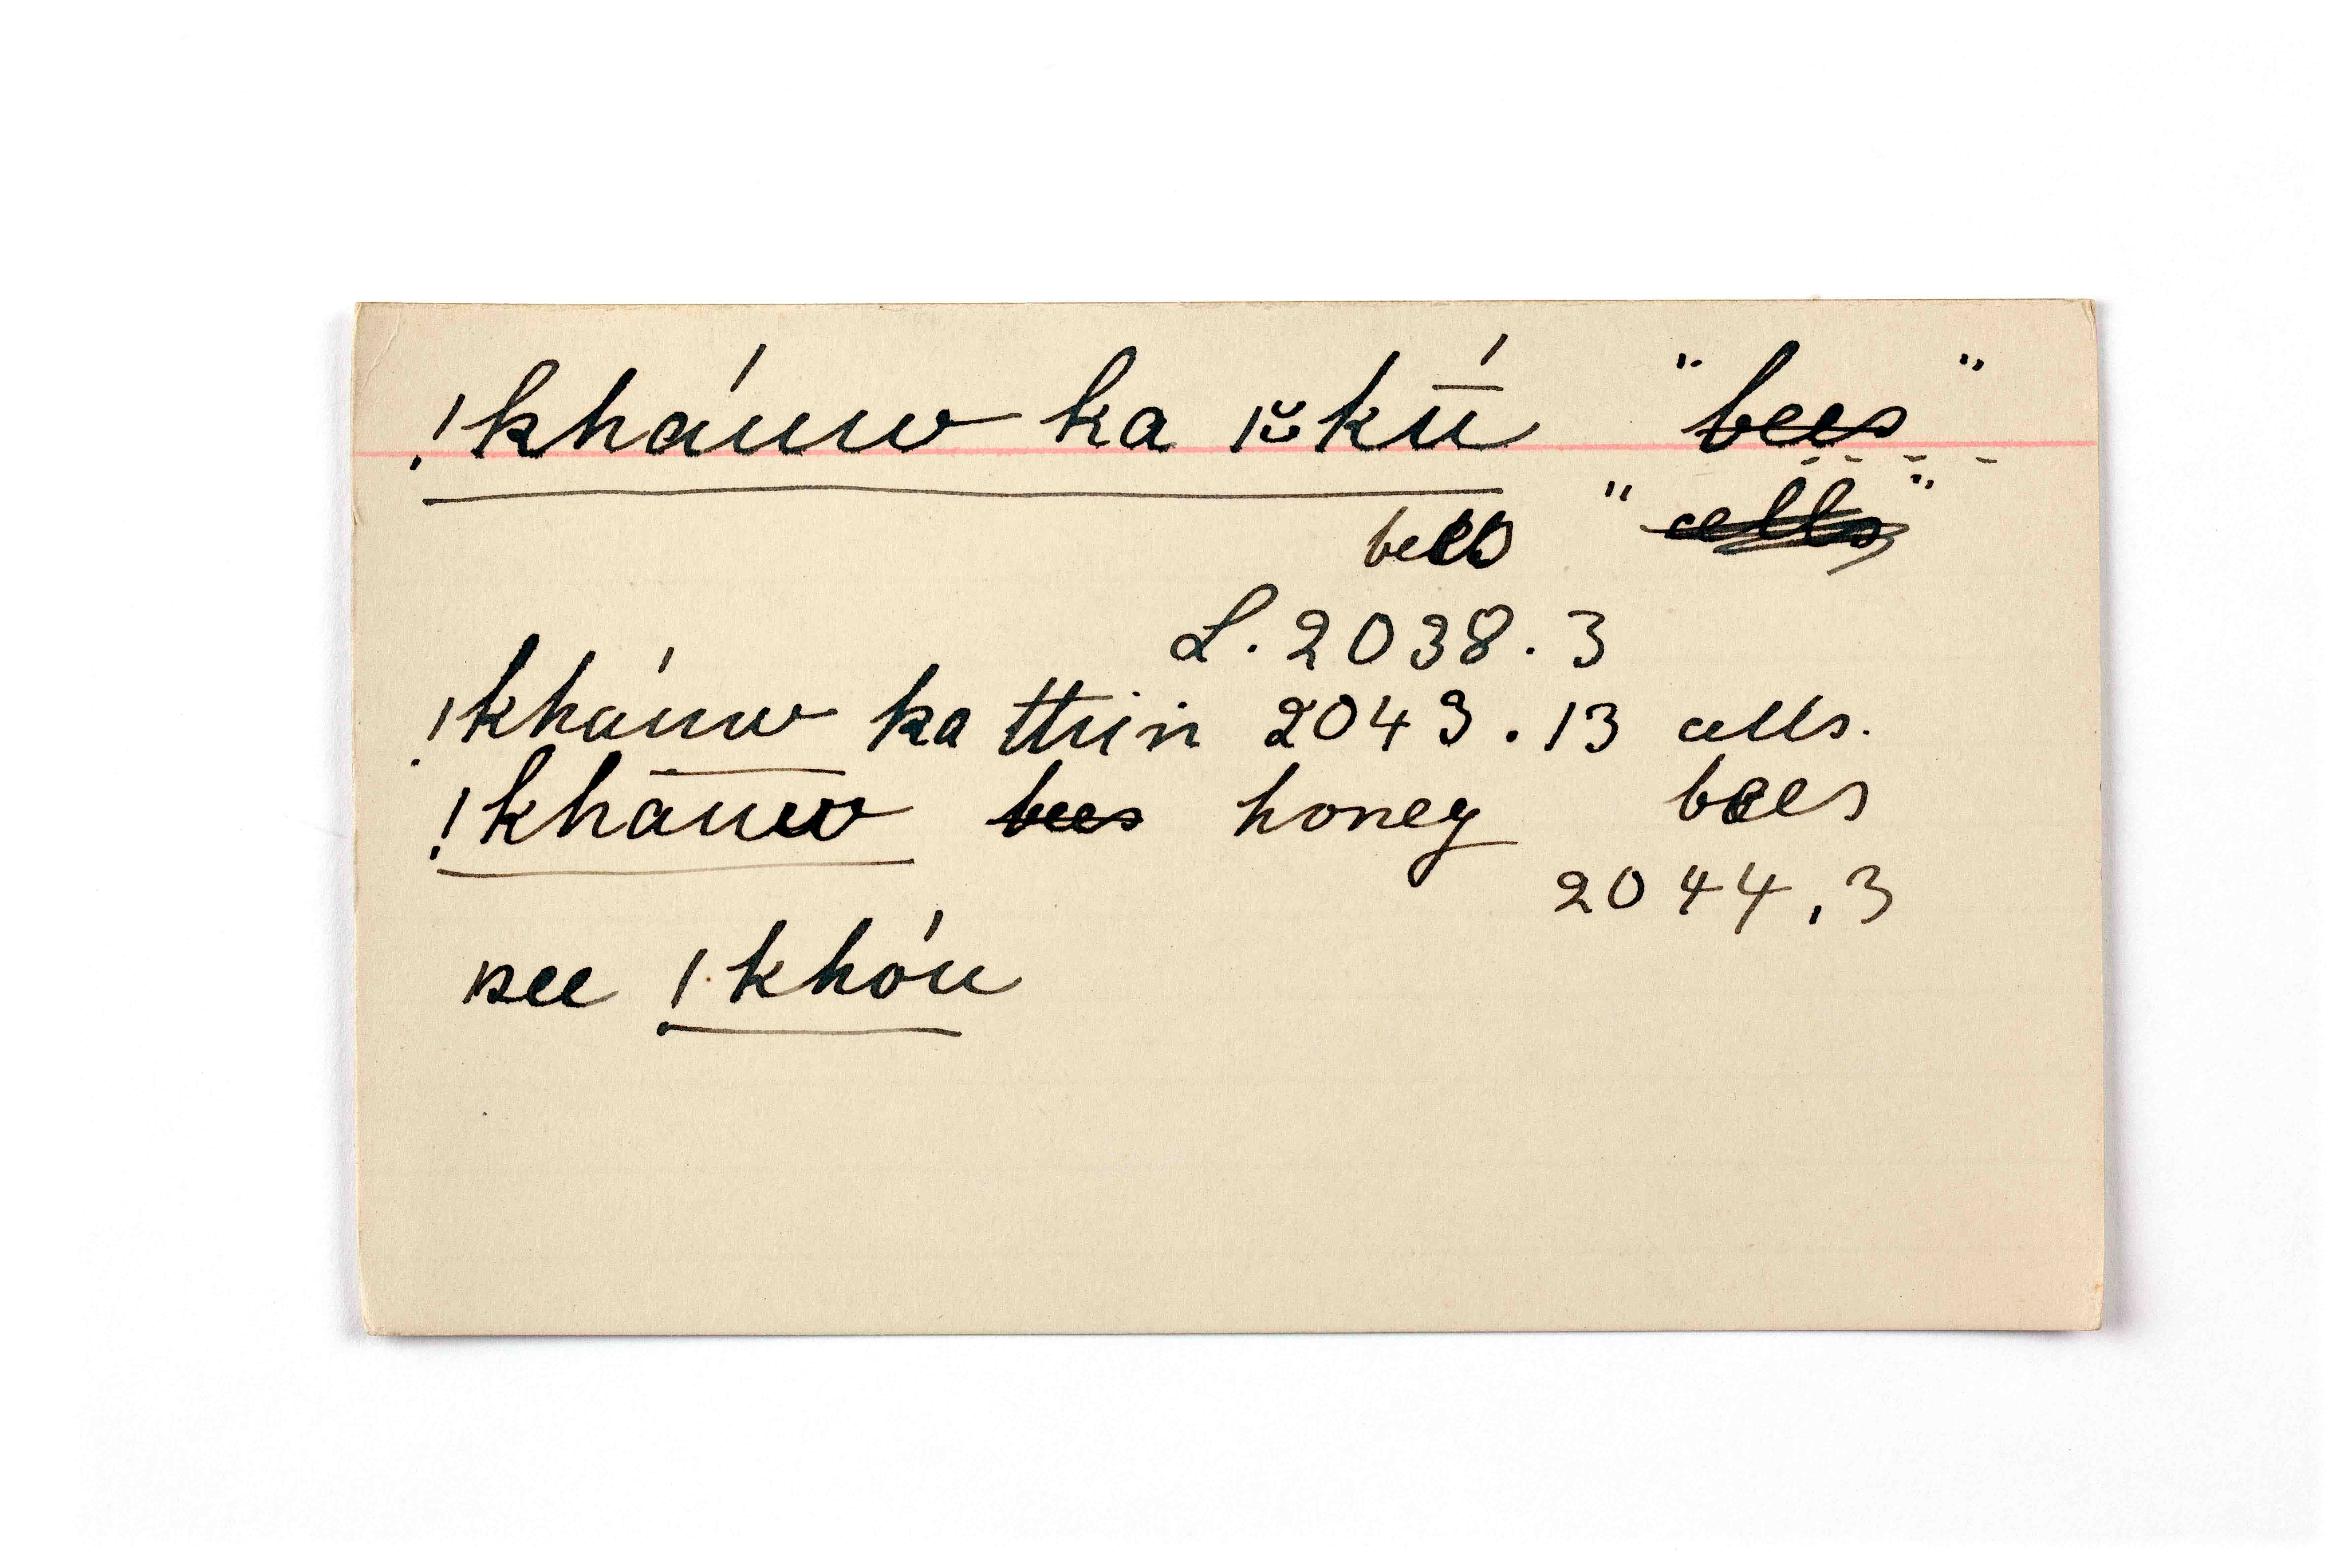 !kháuw ka |k̆ū́ "bees"
"cells"
bees
L. 2038.3
!kháuw ka ttuin 2043.13 cells.
!khāuw bees honey bees
2044.3
see !khóu